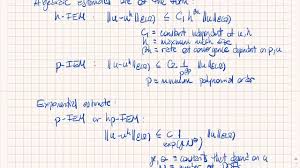 Algebraic estimates are of the form :
h-FEM : ||u-uʰ||_E(Ω) ≤ C₁ h^α ||u||_E(Ω)
C₁ = constant independent of u, h
h = maximum mesh size
α = rate of convergence dependent on p, u
p-FEM : ||u-uʰ||_E(Ω) ≤ C₂ 1/p^β ||u||_E(Ω)
p = minimum polynomial order
Exponential estimate :
p-FEM or hp-FEM : ||u-uʰ||_E(Ω) ≤ C 1/exp(γN^Θ)
γ, Θ = constants that depend on